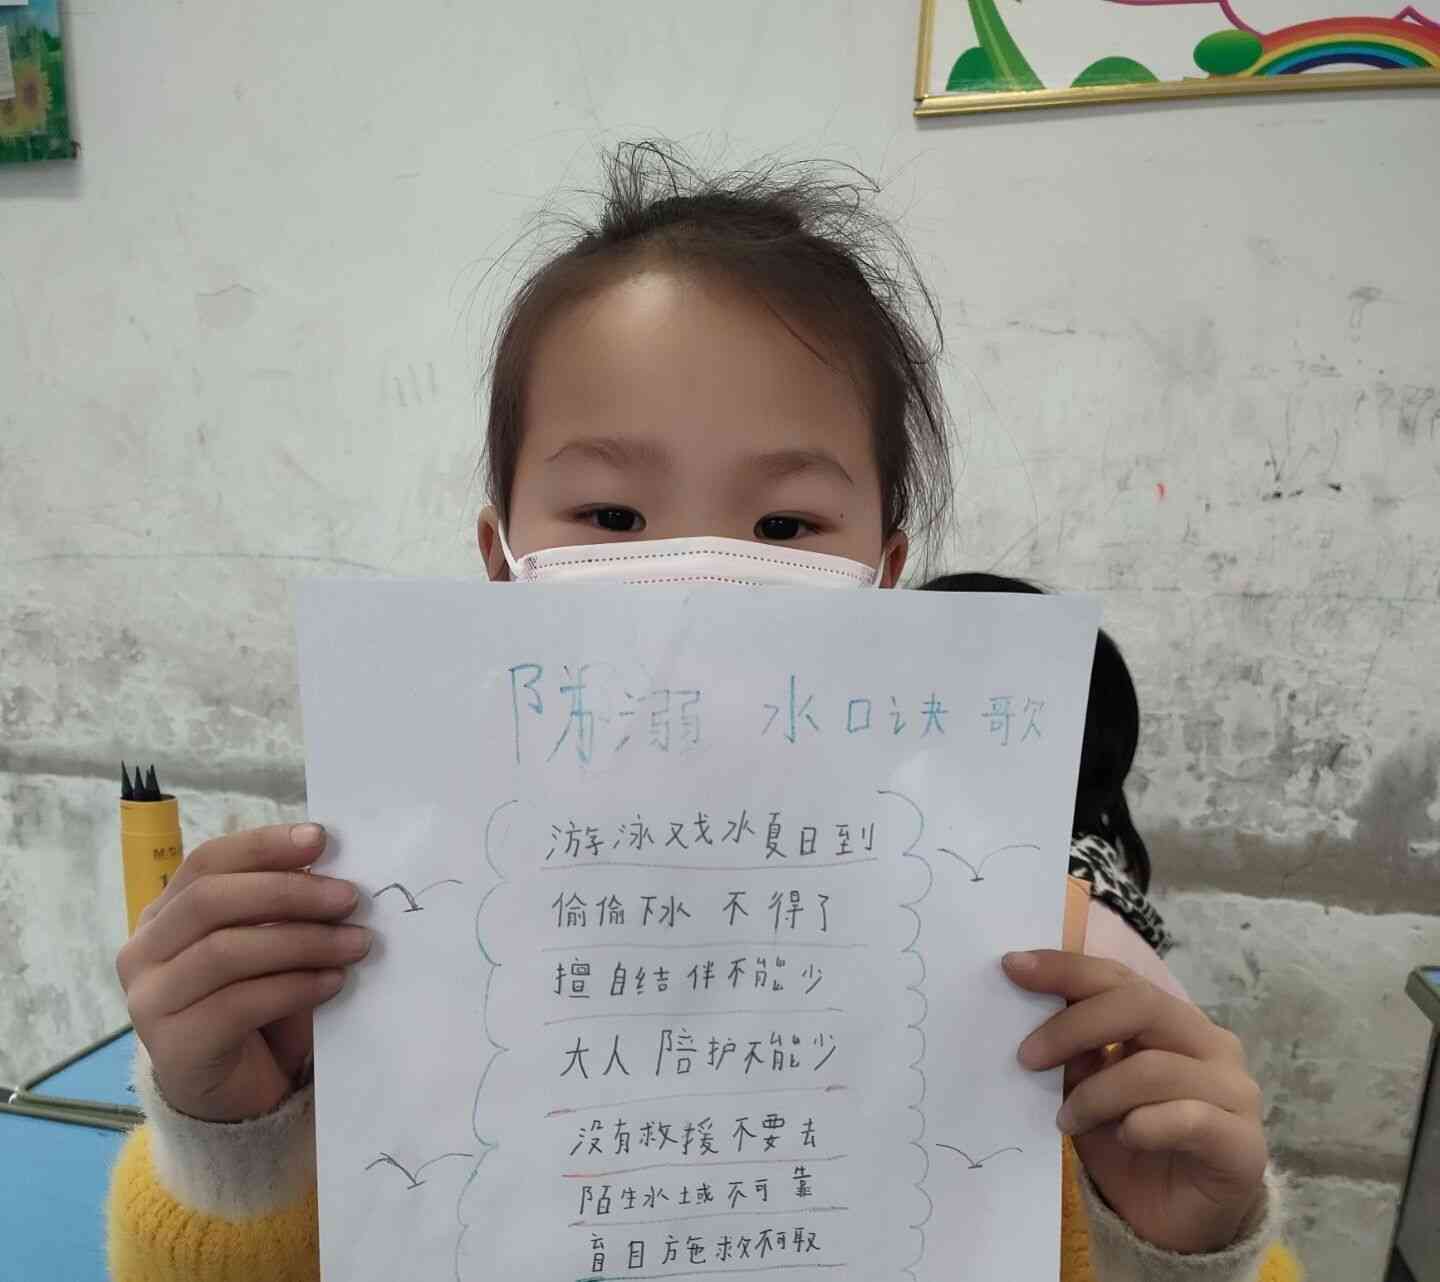 防溺水口诀歌
游泳戏水夏日到
偷偷下水不得了
擅自结伴不能少
大人陪护不能少
没有救援不要去
陌生水域不可靠
盲目施救不可取